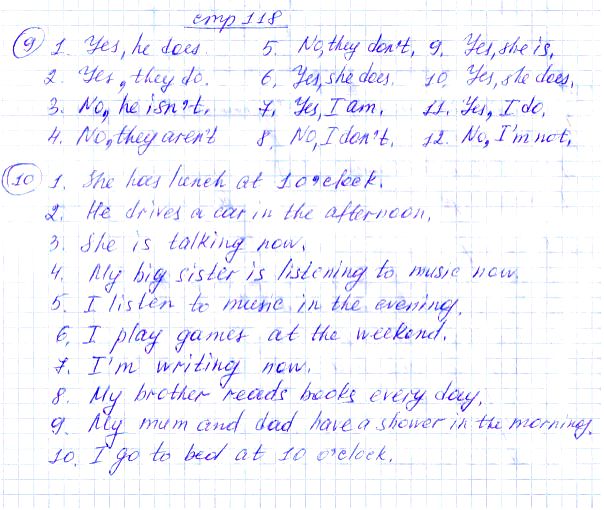 стр 118
9 1. Yes, he does. 5. No, they don't. 9. Yes, she is.
2. Yes, they do. 6. Yes, she does. 10. Yes, she does.
3. No, he isn't. 7. Yes, I am. 11. Yes, I do.
4. No, they aren't 8. No, I don't. 12. No, I'm not.
10 1. She has lunch at 1 o'clock.
2. He drives a car in the afternoon.
3. She is talking now.
4. My big sister is listening to music now.
5. I listen to music in the evening.
6. I play games at the weekend.
7. I'm writing now.
8. My brother reads books every day.
9. My mum and dad have a shower in the morning.
10. I go to bed at 10 o'clock.